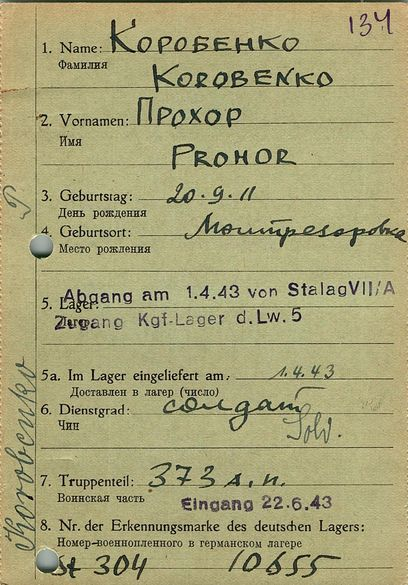 134
1. Name: КОРОБЕНКО
Фамилия
KOROBENKO
2. Vornamen: ПРОХОР
Имя
PROHOR
3. Geburtstag: 20.9.11
День рождения
4. Geburtsort:
Место рождения
Abgang am 1.4.43 von Stalag VII/A
5. Lager:
Лагерь
Zugang Kgf-Lager d. Lw. 5
5a. Im Lager eingeliefert am: 1.4.43
Доставлен в лагер (число)
6. Dienstgrad: солдат
Чин
Sold.
7. Truppenteil: 373 л.п.
Воинская часть
Eingang 22.6.43
8. Nr. der Erkennungsmarke des deutschen Lagers:
Номер-военнопленного в германском лагере
St 304 10655
Korobenko P